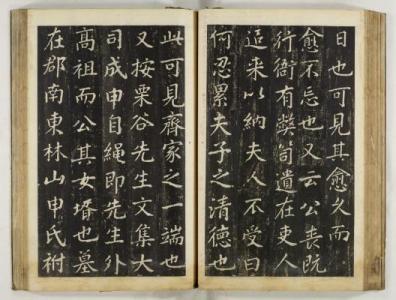 日也可見其愈久而
愈不忘也又云公喪既
行衙有弊笥遺在吏人
這来以納夫人不受曰
何忍累夫子之清德也
此可見齊家之一端也
又按栗谷先生文集大
司成申自繩即先生外
高祖而公其女壻也墓
在郡南東林山申氏祔